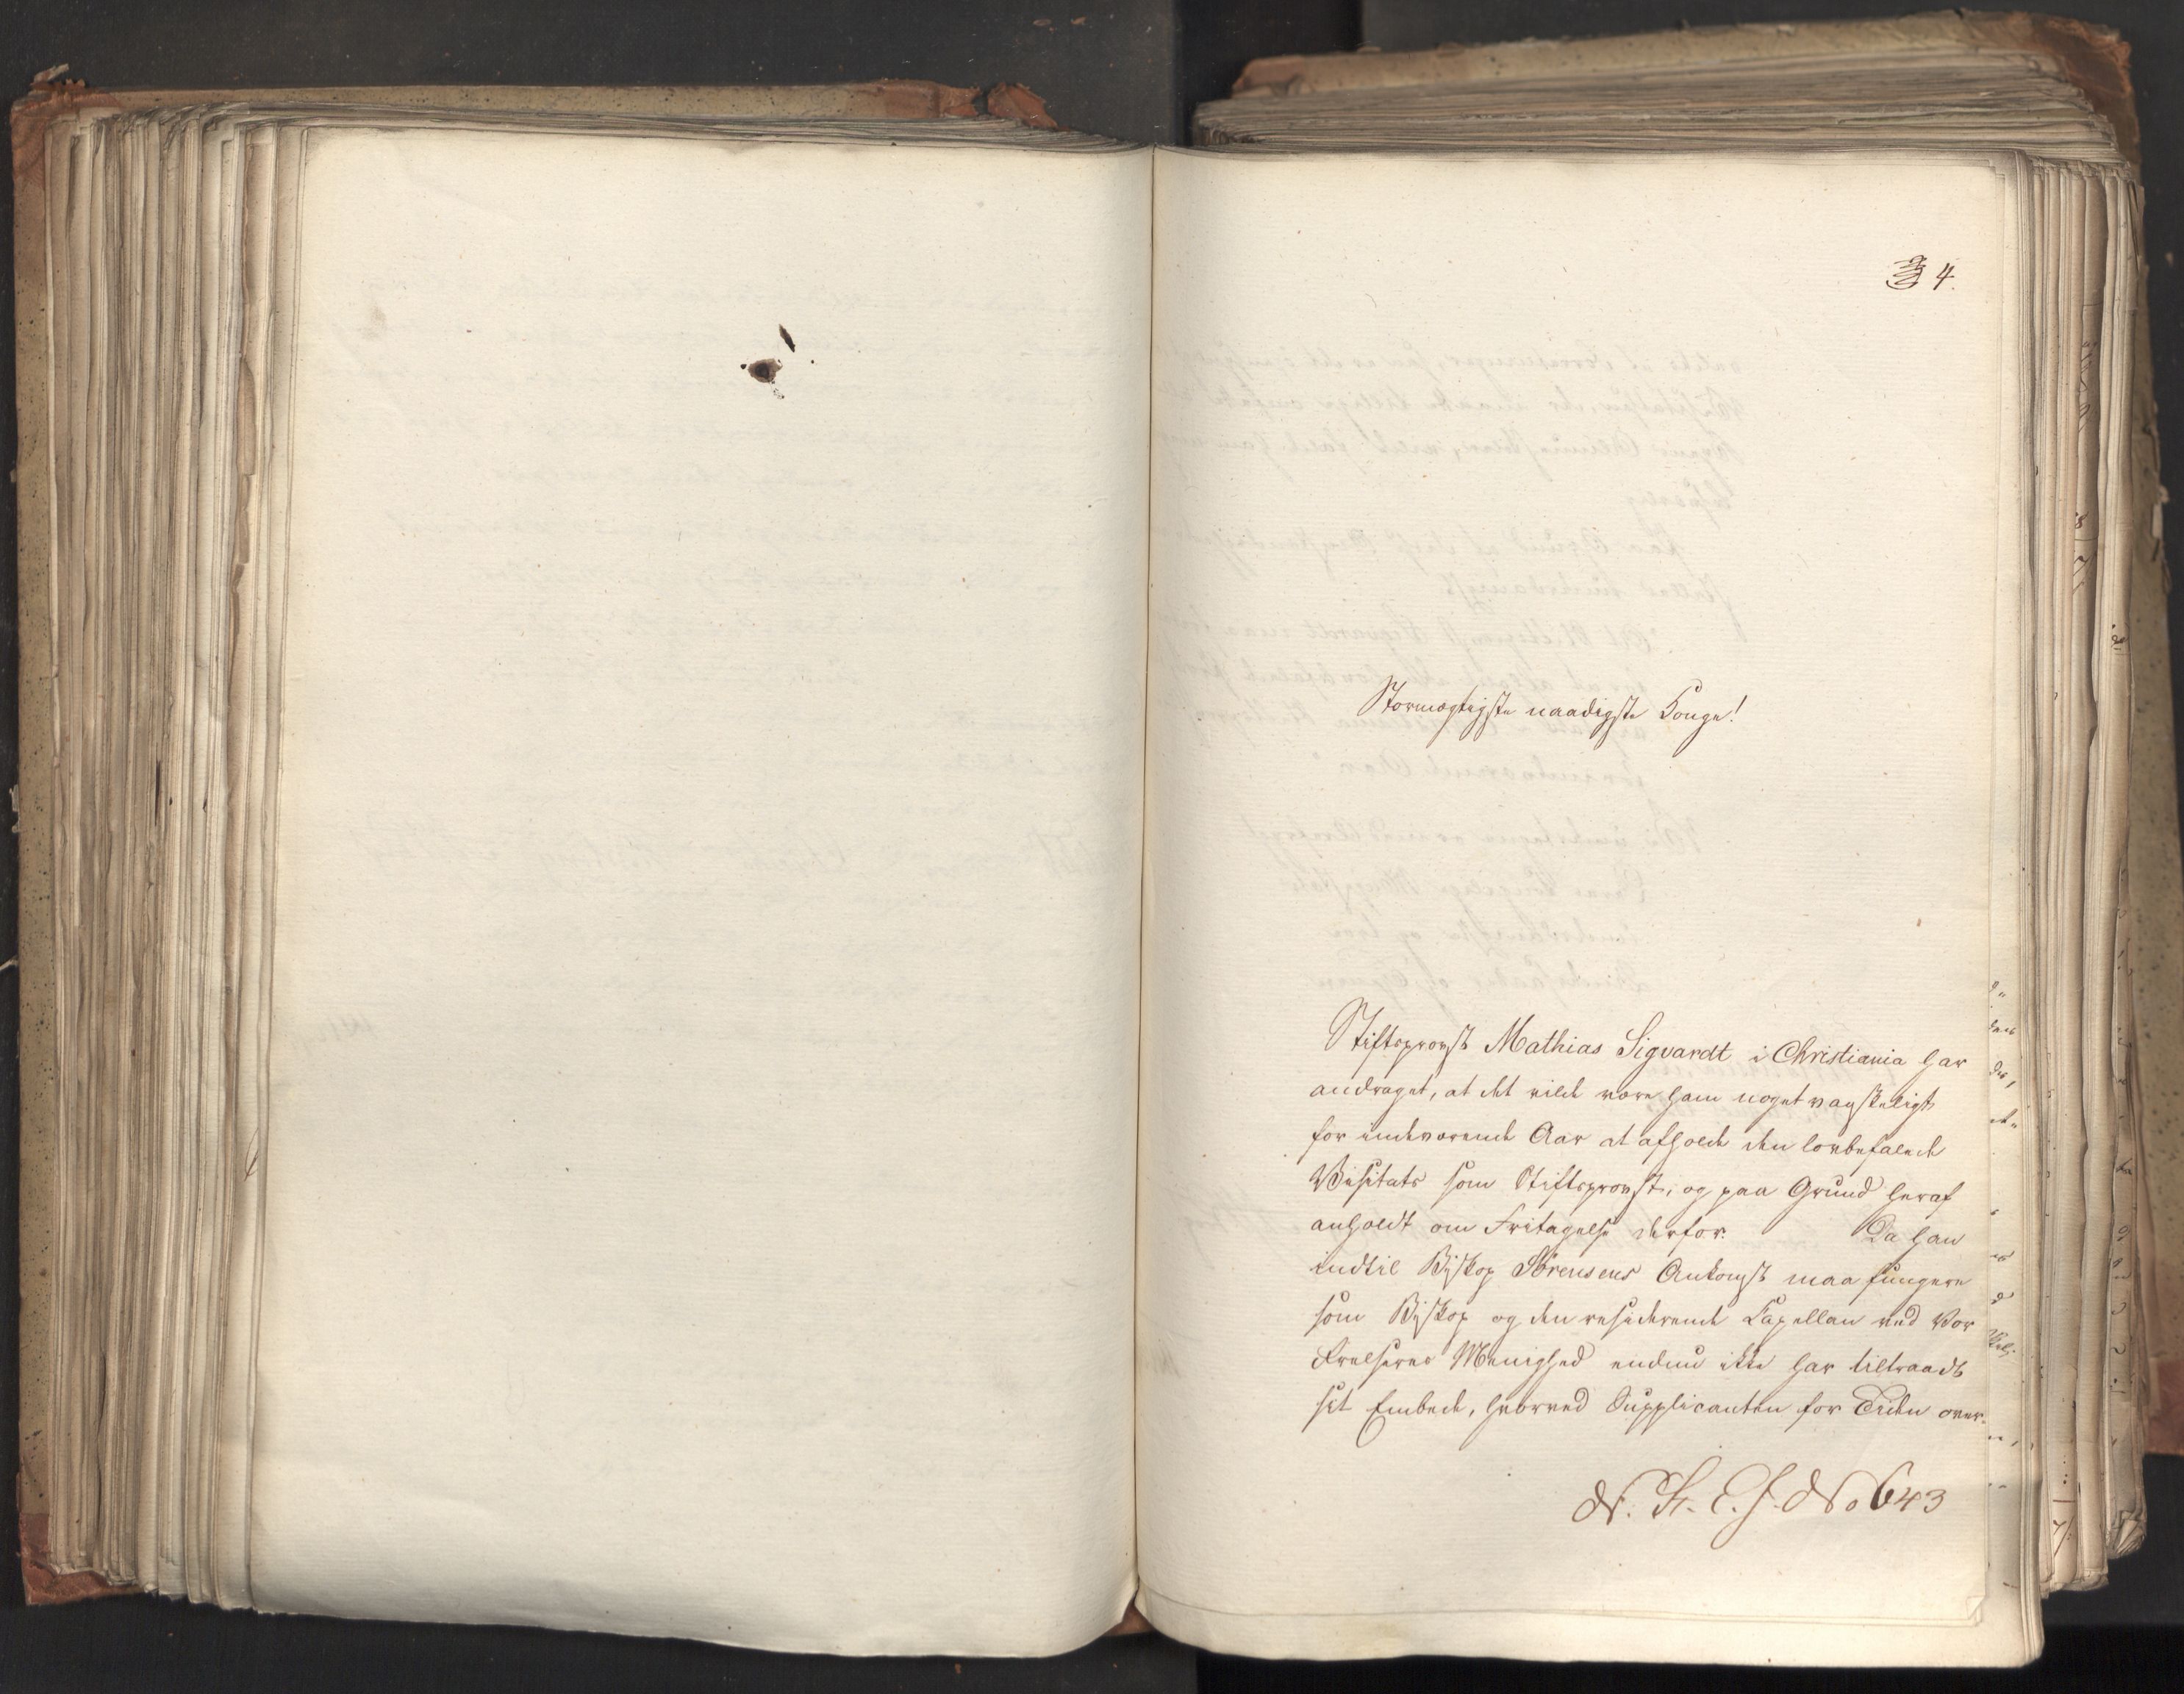 4.
Stormægtigste naadigste Konge!
Stiftsprovst Mathias Sigvardt i Christiania har
andraget, at det vilde være ham noget vanskeligt
for indeværende Aar at afholde den lovbefalede
Visitats som Stiftsprovst, og paa Grund heraf
anholdt om Fritagelse derfor. Da han
indtil Biskop Sörensens Ankomst maa fungere
som Biskop og den residerende Capellan ved Vor
Frelseres Menighed endnu ikke har tiltraadt
sit Embede, hvorved Supplicanten for Tiden over-
N. St. E. J. No 643